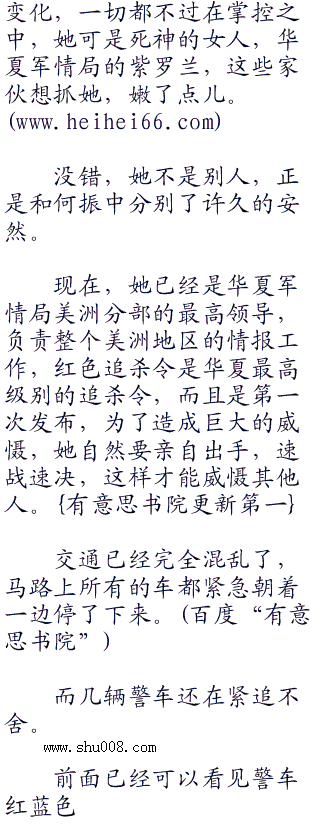 变化，一切都不过在掌控之
中，她可是死神的女人，华
夏军情局的紫罗兰，这些家
伙想抓她，嫩了点儿。
(www.heihei66.com)
没错，她不是别人，正
是和何振中分别了许久的安
然。
现在，她已经是华夏军
情局美洲分部的最高领导，
负责整个美洲地区的情报工
作，红色追杀令是华夏最高
级别的追杀令，而且是第一
次发布，为了造成巨大的威
慑，她自然要亲自出手，速
战速决，这样才能威慑其他
人。{有意思书院更新第一}
交通已经完全混乱了，
马路上所有的车都紧急朝着
一边停了下来。(百度“有意
思书院”)
而几辆警车还在紧追不
舍。
www.shu008.com
前面已经可以看见警车
红蓝色